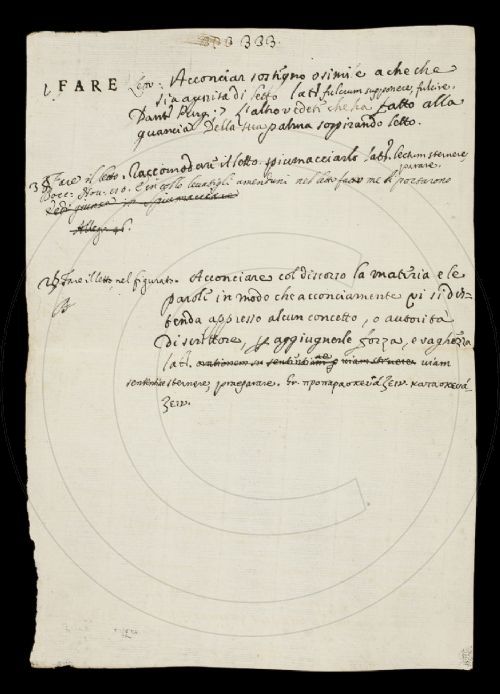 333
FARE Letto. Acconciar sostegno o simile a che che
sia a guisa di letto lat. fulcum supponere, fulcire.
Dant. Purg. 7 L'altro vedete che ha fatto alla
guancia Della sua palma sospirando letto.
Fare il letto. Raccomodare il letto, spiumacciarlo lat. lectum sternere
parare.
Bocc. Nov. e in collo levatigli amenduni nel letto fatto me 'l portarono
Allegr.
Fare il letto, nel figurato. Acconciare col discorso la materia e le
parole in modo che acconciamente vi si dis-
tenda appresso alcun concetto, o autorità
di scrittore, p aggiugnerle forza, e vaghezza
lat. orationem viam sternere viam
sententiae sternere, praeparare. Gr. προπαρασκευάζειν. κατασκευά-
ζειν.